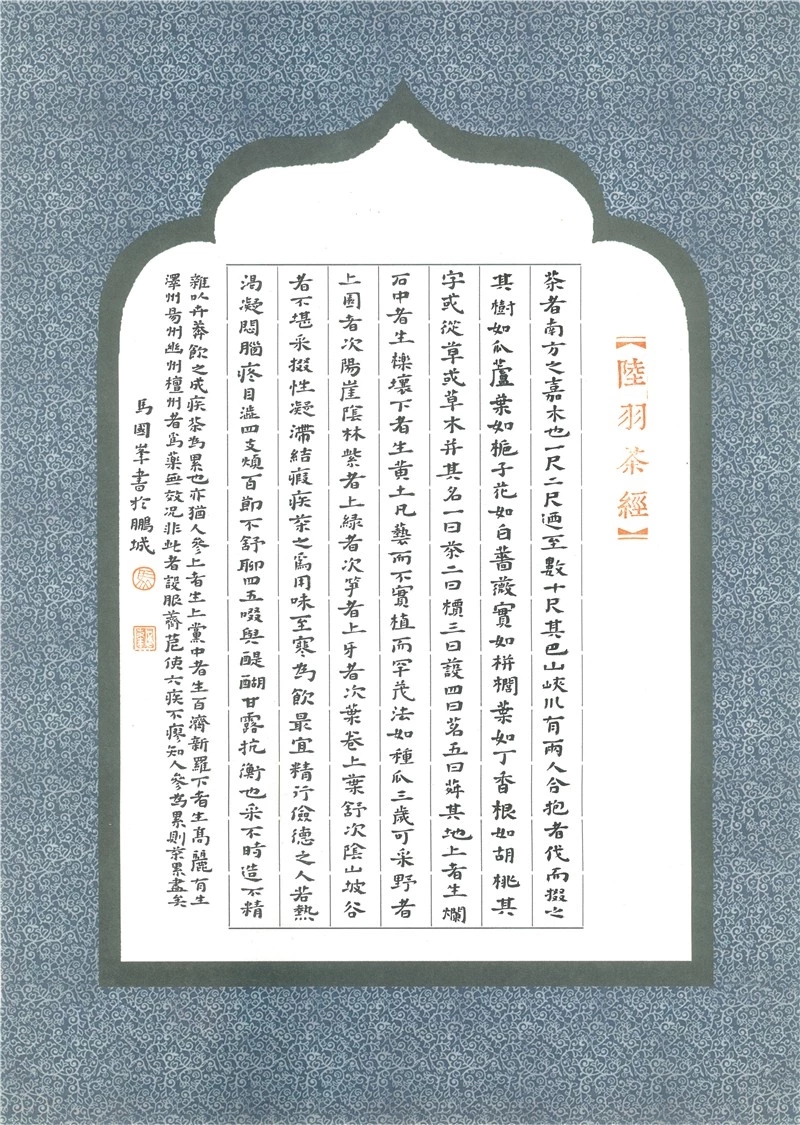 【陸羽茶經】
茶者南方之嘉木也一尺二尺迺至數十尺其巴山峽川有兩人合抱者伐而掇之
其樹如瓜蘆葉如梔子花如白薔薇實如栟櫚葉如丁香根如胡桃其
字或從草或草木并其名一曰茶二曰檟三曰蔎四曰茗五曰荈其地上者生爛
石中者生櫟壤下者生黄土凡藝而不實植而罕茂法如種瓜三歲可采野者
上園者次陽崖陰林紫者上緑者次笋者上牙者次葉卷上葉舒次陰山坡谷
者不堪采掇性凝滯結瘕疾茶之爲用味至寒为飲最宜精行儉德之人若熱
渴凝悶腦疼目澁四支煩百節不舒聊四五啜與醍醐甘露抗衡也采不時造不精
雜以卉莽飲之成疾茶为累也亦猶人參上者生上黨中者生百濟新羅下者生高麗有生
澤州易州幽州檀州者爲藥無效況非此者設服薺苨使六疾不瘳知人參为累則茶累盡矣
馬國峯書於鵬城